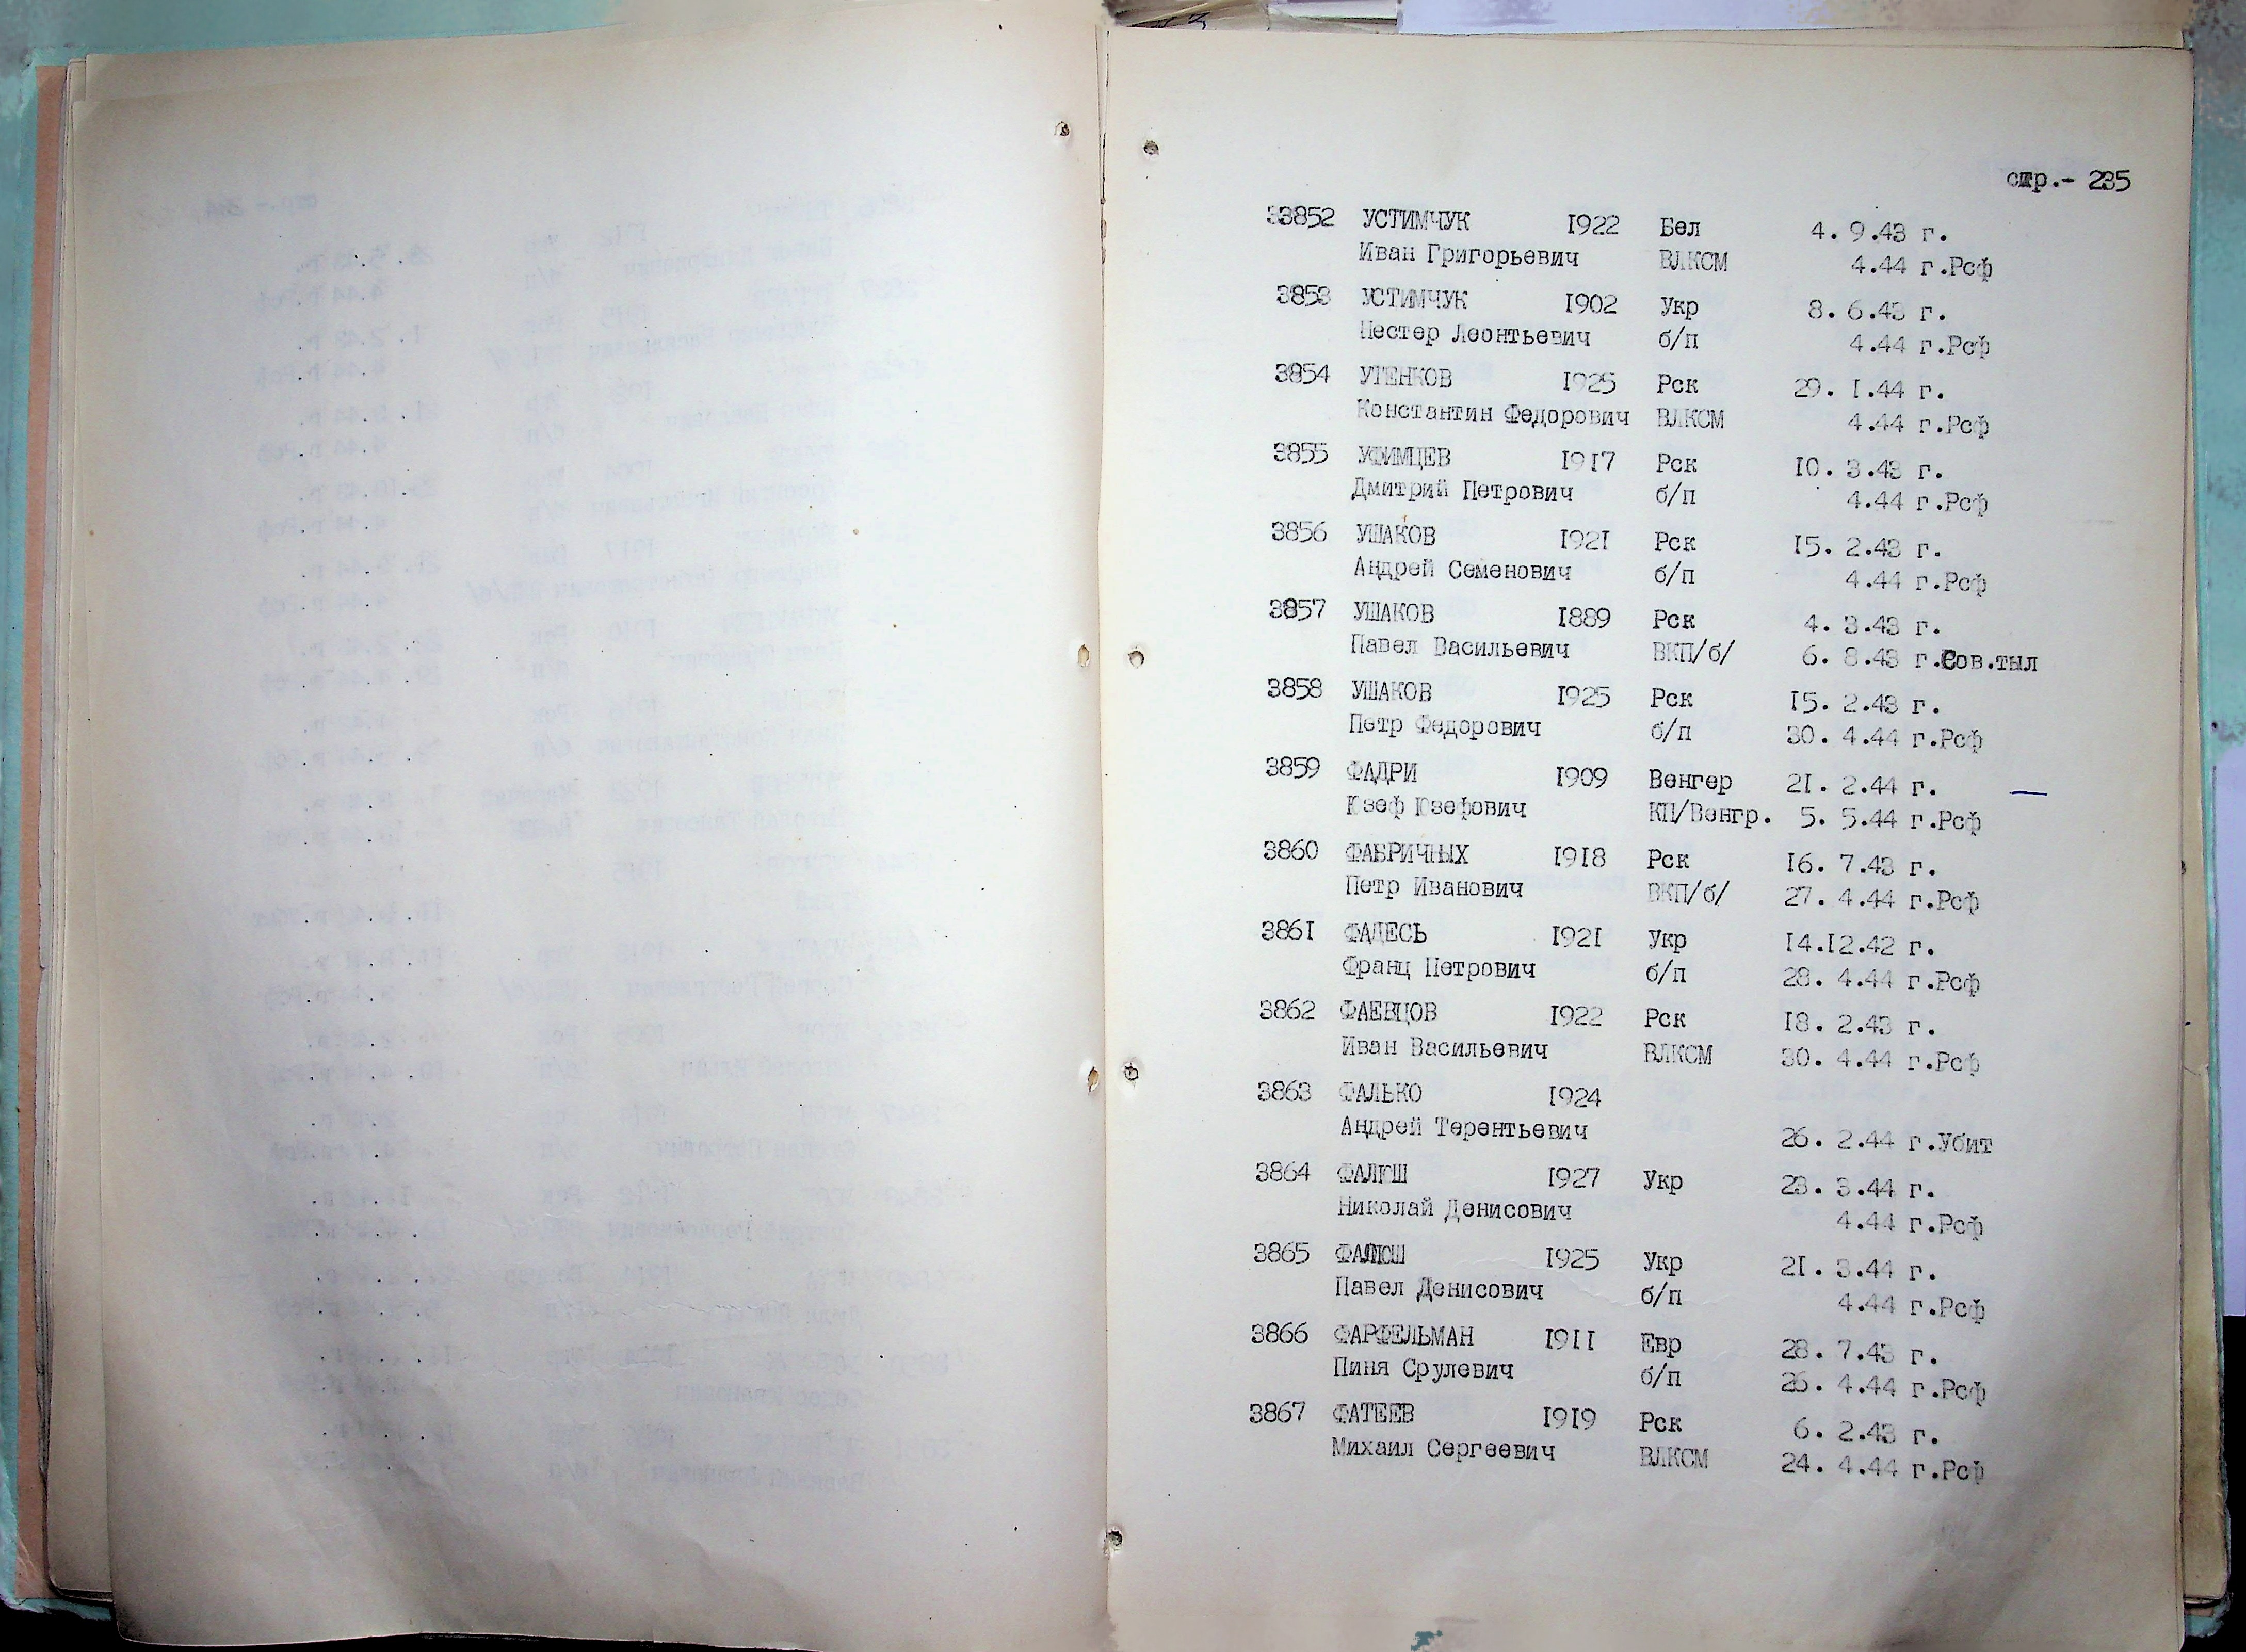 стр.- 235
3852 УСТИМЧУК 1922 Бел 4. 9.43 г.
Иван Григорьевич ВЛКСМ 4.44 г.Рсф
3853 УСТИМЧУК 1902 Укр 8. 6.43 г.
Нестер Леонтьевич б/п 4.44 г.Рсф
3854 УТЕНКОВ 1925 Рск 29. 1.44 г.
Константин Федорович ВЛКСМ 4.44 г.Рсф
3855 УФИМЦЕВ 1917 Рск 10. 3.43 г.
Дмитрий Петрович б/п 4.44 г.Рсф
3856 УШАКОВ 1921 Рск 15. 2.43 г.
Андрей Семенович б/п 4.44 г.Рсф
3857 УШАКОВ 1889 Рск 4. 3.43 г.
Павел Васильевич ВКП/б/ 6. 8.43 г.Сов.тыл
3858 УШАКОВ 1925 Рск 15. 2.43 г.
Петр Федорович б/п 30. 4.44 г.Рсф
3859 ФАДРИ 1909 Венгер 21. 2.44 г.
Юзеф Юзефович КП/Венгр. 5. 5.44 г.Рсф
3860 ФАБРИЧНЫХ 1918 Рск 16. 7.43 г.
Петр Иванович ВКП/б/ 27. 4.44 г.Рсф
3861 ФАДЕСЬ 1921 Укр 14.12.42 г.
Франц Петрович б/п 28. 4.44 г.Рсф
3862 ФАЕВЦОВ 1922 Рск 18. 2.43 г.
Иван Васильевич ВЛКСМ 30. 4.44 г.Рсф
3863 ФАЛЬКО 1924
Андрей Терентьевич 26. 2.44 г.Убит
3864 ФАЛЮШ 1927 Укр 23. 3.44 г.
Николай Денисович 4.44 г.Рсф
3865 ФАЛЮШ 1925 Укр 21. 3.44 г.
Павел Денисович б/п 4.44 г.Рсф
3866 ФАРФЕЛЬМАН 1911 Евр 28. 7.43 г.
Пиня Срулевич б/п 26. 4.44 г.Рсф
3867 ФАТЕЕВ 1919 Рск 6. 2.43 г.
Михаил Сергеевич ВЛКСМ 24. 4.44 г.Рсф